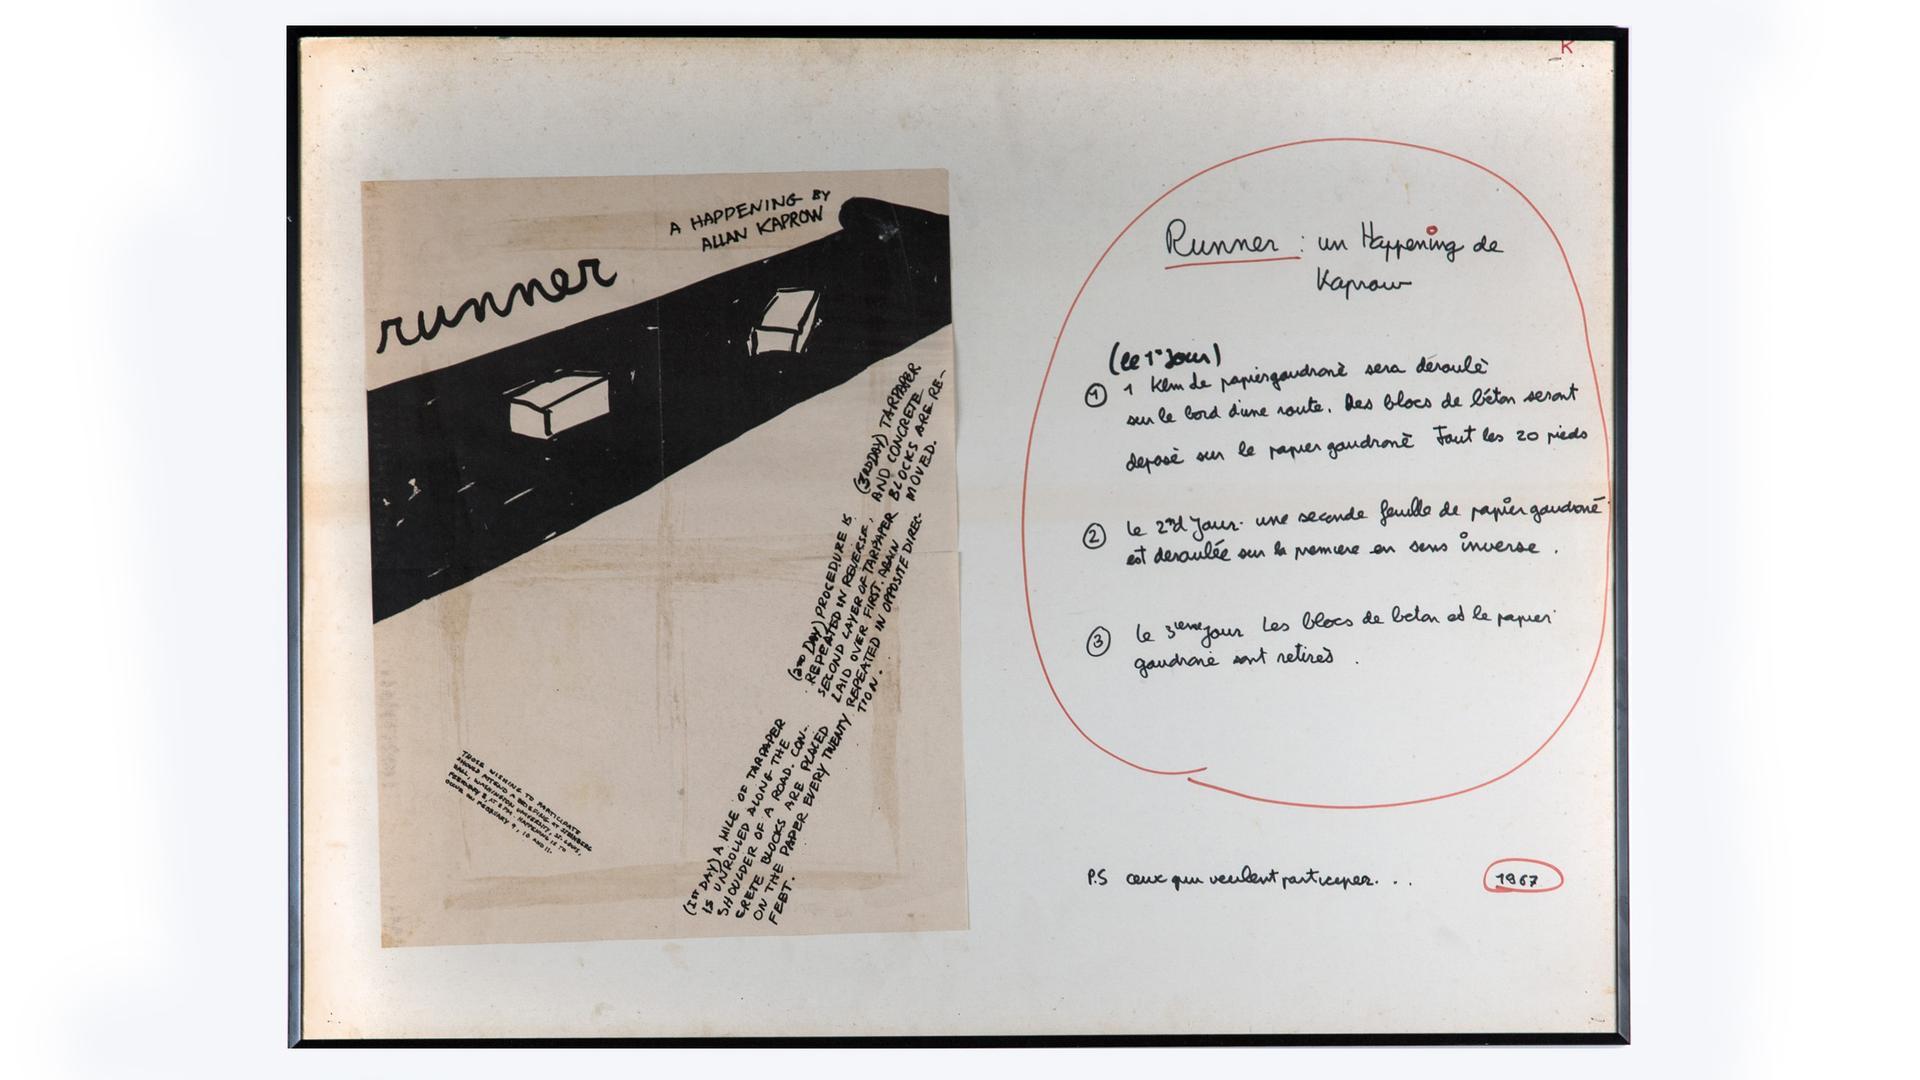 K
A HAPPENING BY
ALLAN KAPROW
runner
(1ST DAY) A MILE OF TARPAPER
IS UNROLLED ALONG THE
SHOULDER OF A ROAD. CON-
CRETE BLOCKS ARE PLACED
ON THE PAPER EVERY TWENTY
FEET.
(2ND DAY) PROCEDURE IS
REPEATED IN REVERSE,
SECOND LAYER OF TARPAPER
LAID OVER FIRST. AGAIN
REPEATED IN OPPOSITE DIREC-
TION.
(3RD DAY) TARPAPER
AND CONCRETE
BLOCKS ARE RE-
MOVED.
THOSE WISHING TO PARTICIPATE
SHOULD ATTEND A BRIEFING AT STEINBERG
HALL, WASHINGTON UNIVERSITY, ST. LOUIS,
FEBRUARY 8, AT 8 PM. HAPPENING IS TO
OCCUR ON FEBRUARY 9, 10 AND 11.
Runner : un Happening de
Kaprow
(le 1er Jour)
① 1 Klm de papiergaudronè sera déroulè
sur le bord d'une route. Des blocs de béton seront
deposè sur le papier gaudronè Tout les 20 pieds
② le 2nd Jour. une seconde feuille de papier gaudronè
est deroulée sur la premiere en sens inverse.
③ le 3ieme jour Les blocs de beton et le papier
gaudronè sont retirès.
P.S ceux qui veulent participer...
1967